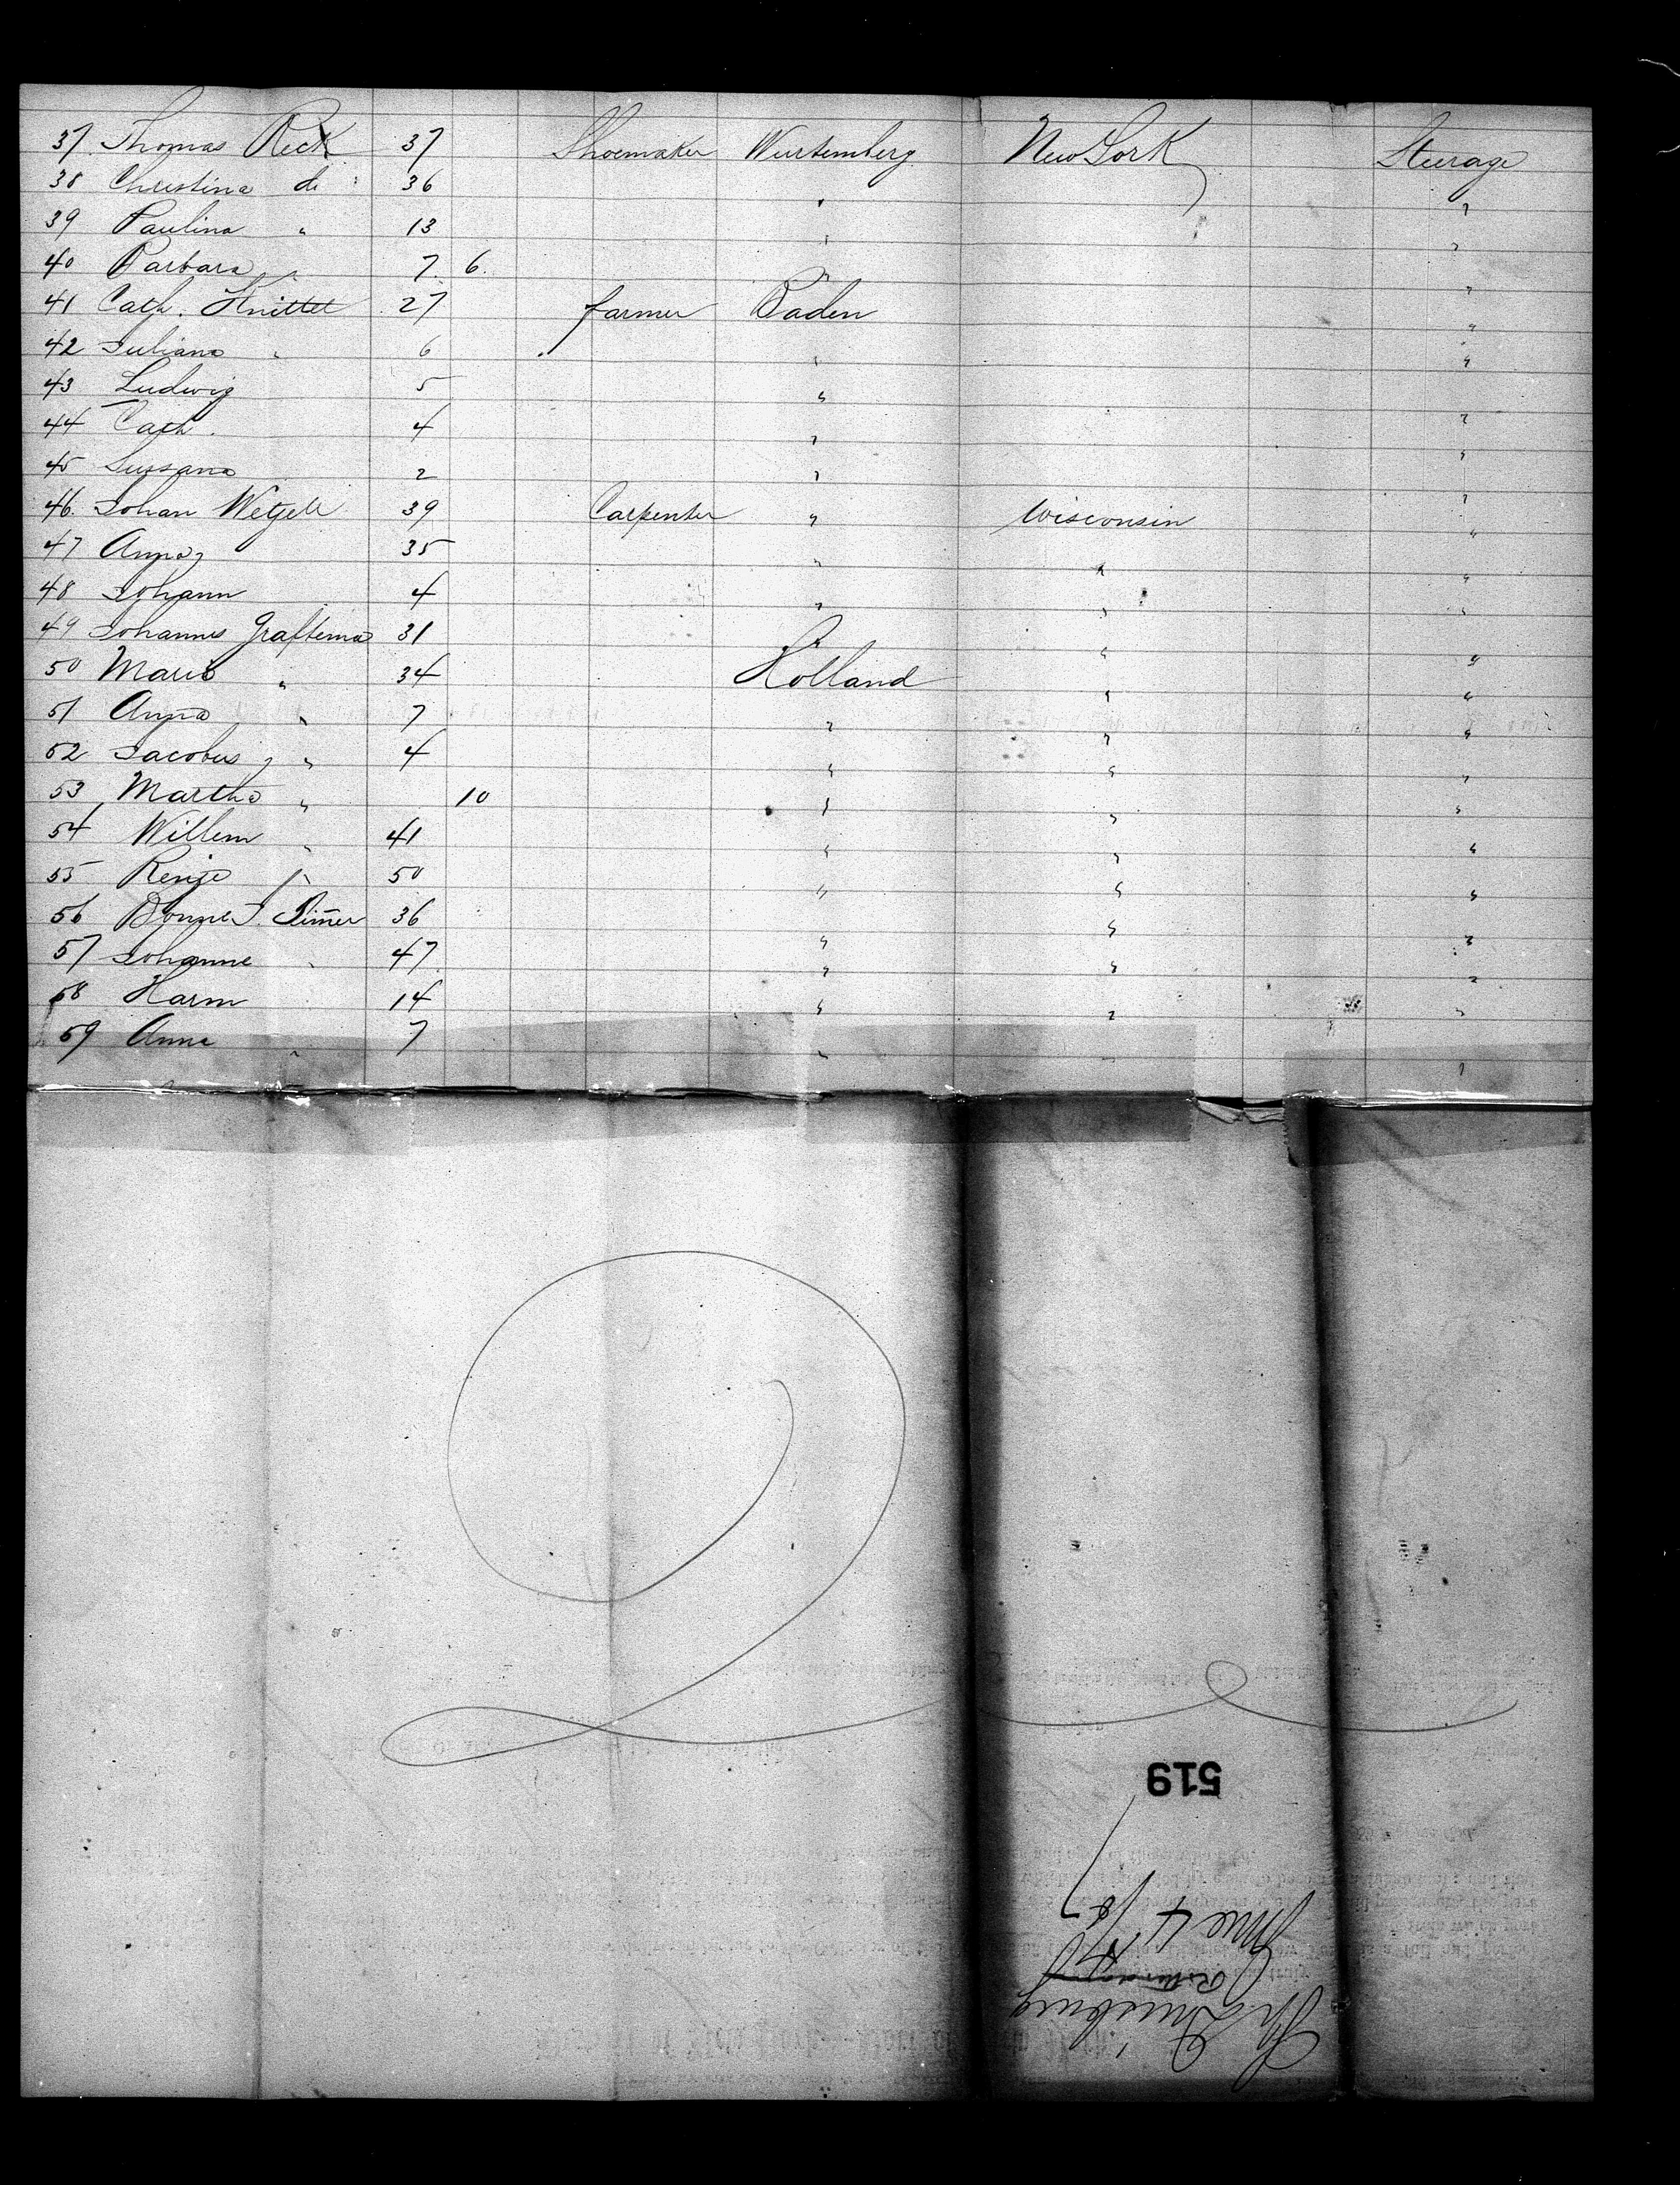 37. Thomas Reck 37 Shoemaker Wurtemberg New York Steerage
38 Christina do 36 " "
39 Paulina " 13 " "
40 Barbara " 7. 6. " "
41 Cath. Knittel 27 farmer Baden "
42 Juliana " 6 " "
43 Ludwig 5 " "
44 Cath. 4 " "
45 Sussana 2 " "
46. Johan Wetzell 39 Carpenter " Wisconsin "
47 Anna 35 " " "
48 Johann 4 " " "
49 Johannes Graftema 31 " "
50 Maria " 34 Holland " "
51 Anna " 7 " " "
52 Jacobus " 4 " " "
53 Martha " 10 " " "
54 Willem " 41 " " "
55 " 50 " " "
56 36 " " "
57 Johanne " 47 " " "
58 Harm 14 " " "
59 Anna " 7 " " "
519
June 4